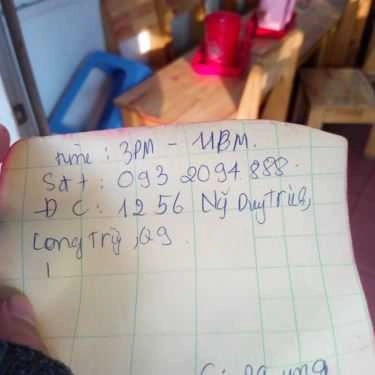 time : 3PM - 11BM.
Sđt : 093 2094 888.
ĐC : 1256 Ng Duy Trinh,
Long Trữ, Q9.